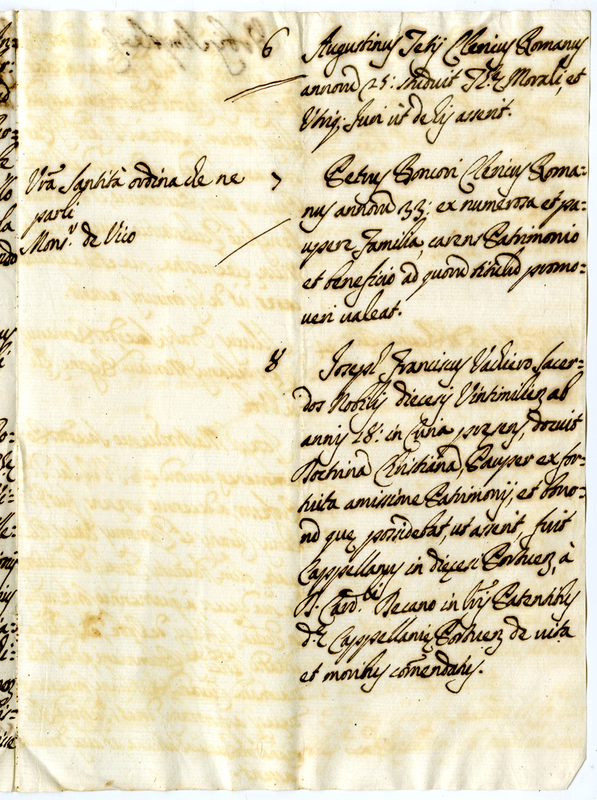 6 Augustinus Tetij Clericus Romanus
annorũ 25: studuit Morali, et
Utriq; Juri ut de se asserit.
Vrã Santità ordina che ne
parli
Mons.r de Vico
7 Petrus Boncori Clericus Roma:
nus annorũ 33: ex numerosa et pa:
upere Familia, carens Patrimonio
et beneficio ad quorũ titulũ promo:
veri valeat.
8 Joseph Franciscus Sacer:
dos Nobilis diecesis Vintimilien ab
annis 28: in Curia presens, docuit
Doctrinã Christianã, Pauper ex for:
tuita amissione Patrimonij, et bono:
rũ que possidebat, ut asserit, fuit
Cappellanus in diecesi Portuen, à
D. Card. Decano in Patentibus
Cappellanie Portuen de vita
et moribus comendatus.